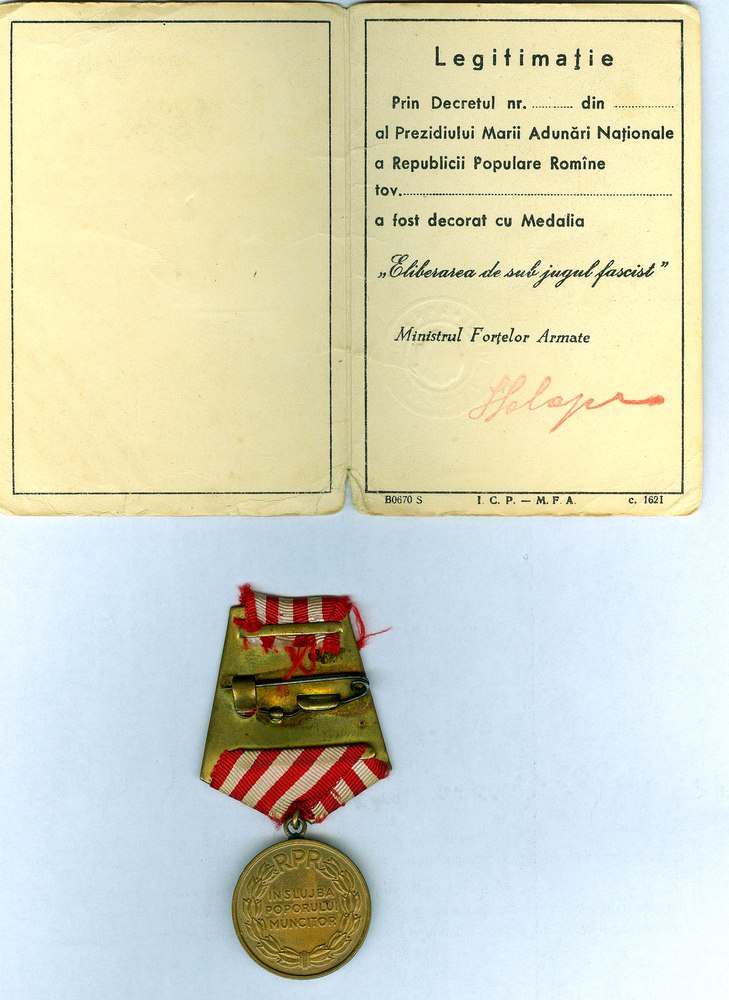 Legitimație
Prin Decretul nr. .......... din ...............
al Prezidiului Marii Adunări Naționale
a Republicii Populare Romîne
tov...............................................................
a fost decorat cu Medalia
„Eliberarea de sub jugul fascist”
Ministrul Forțelor Armate
B0670 S I. C. P. — M. F. A. c. 1621
RPR
IN SLUJBA
POPORULUI
MUNCITOR